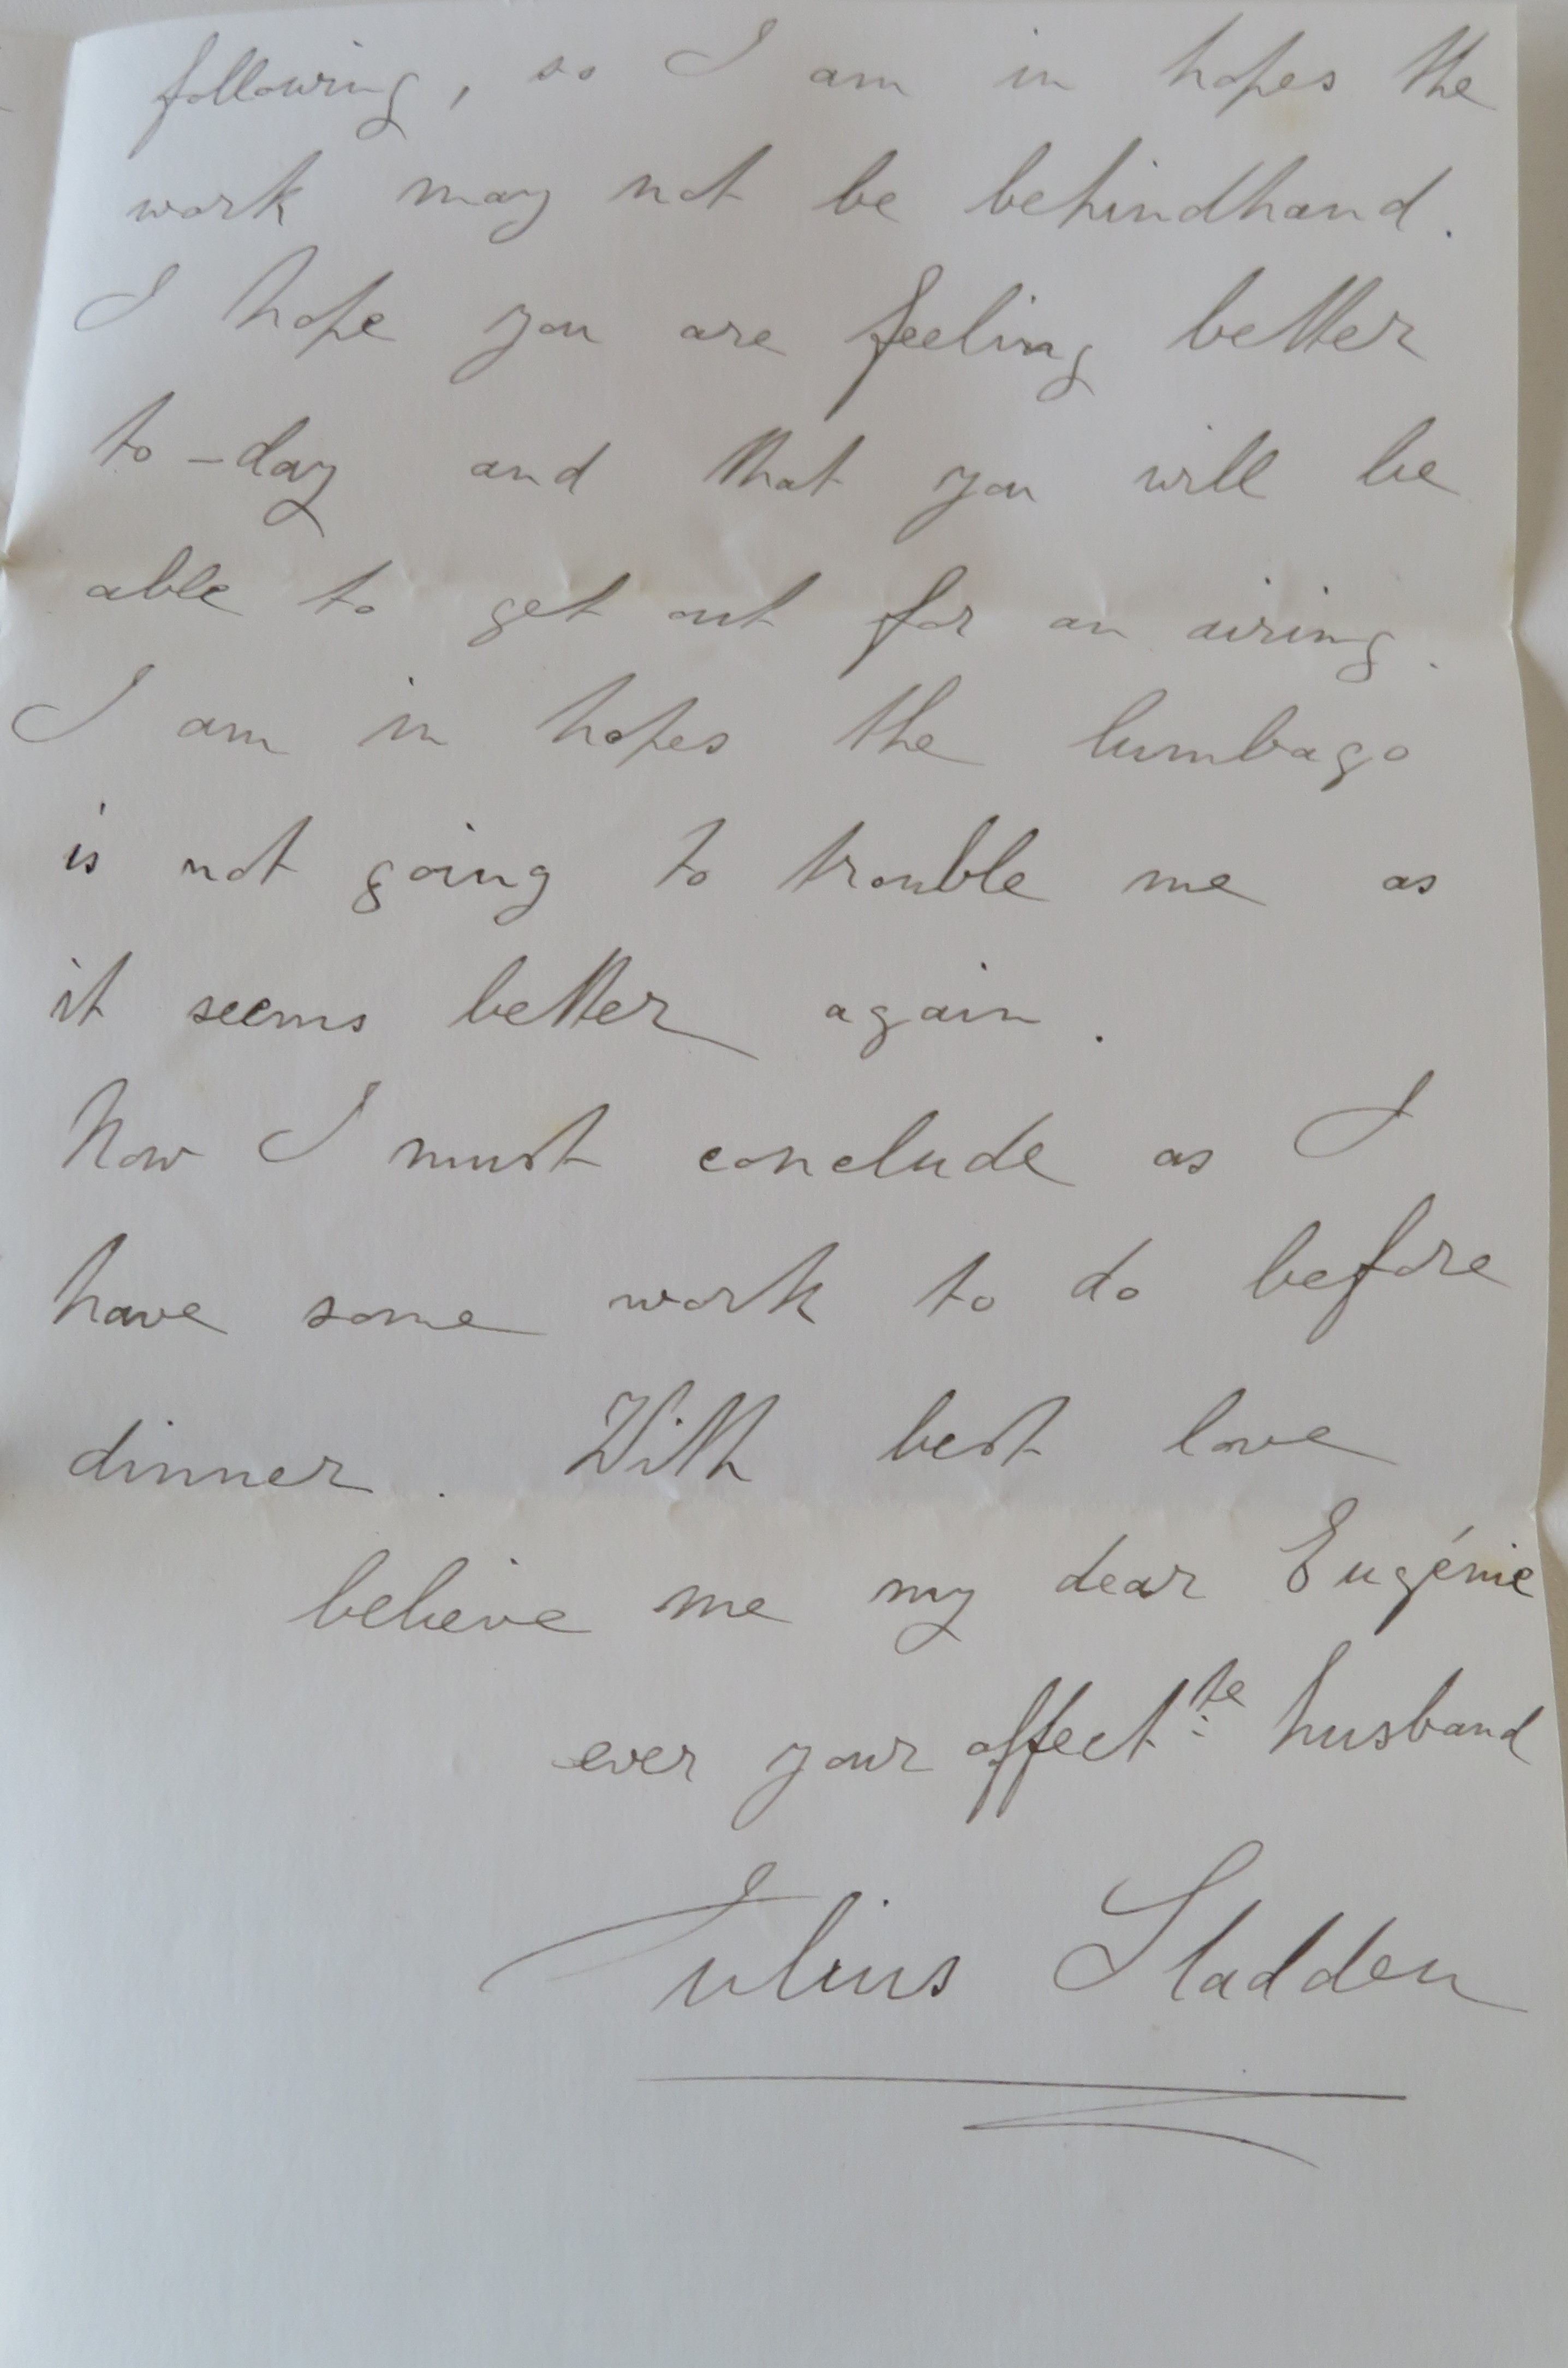 following, so I am in hopes the
work may not be behindhand.
I hope you are feeling better
to-day and that you will be
able to get out for an airing.
I am in hopes the lumbago
is not going to trouble me as
it seems better again.
Now I must conclude as I
have some work to do before
dinner. With best love
believe me my dear Eugénie
ever your affectte husband
Julius Sladden